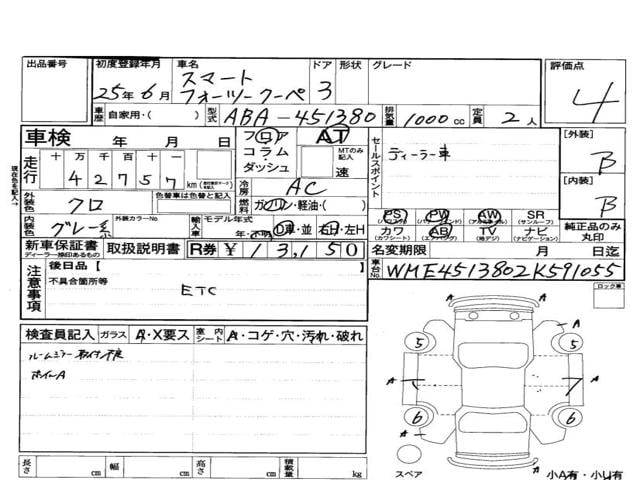 出品番号 初度登録年月 車名 ドア 形状 グレード 評価点
25年6月 スマート フォーツークーペ 3 4
車歴 自家用・( ) 型式 ABA-451380 排気量 1000cc 定員 2人
車検 年 月 日 フロア コラム・ダッシュ AT MTのみ記入 速 セールスポイント ディーラー車 [外装] B
走行 十万 千 百 十 一 42757 km 冷房 AC [内装] B
外装色 クロ 色替車は色替と元色 燃料 ガソリン・軽油・( )
内装色 グレー系 外装カラーNo. 輸入車 モデル年式 年・不明 D車・並 右H・左H
PS PW AW SR
(パワステ) (パワーウィンドウ) (アルミホイール) (サンルーフ)
カワ AB TV ナビ 純正品のみ丸印
(カワシート) (エアバッグ) (地デジ) (ナビゲーション)
新車保証書 ディーラー捺印あるもの 取扱説明書 R券 ¥13,150 名変期限 月 日迄
車台No. WME4513802K591055
注意事項 後日品【 】
不具合箇所等
ETC
ロック車
検査員記入 ガラス A・X要ス 室内シート A・コゲ・穴・汚れ・破れ
ルームミラー取付不良
ホイールA
A
5 5
A A
6 6
A
スペア 小A有・小U有
長さ cm 幅 cm 高さ cm 積載量 kg
現在色を記入→